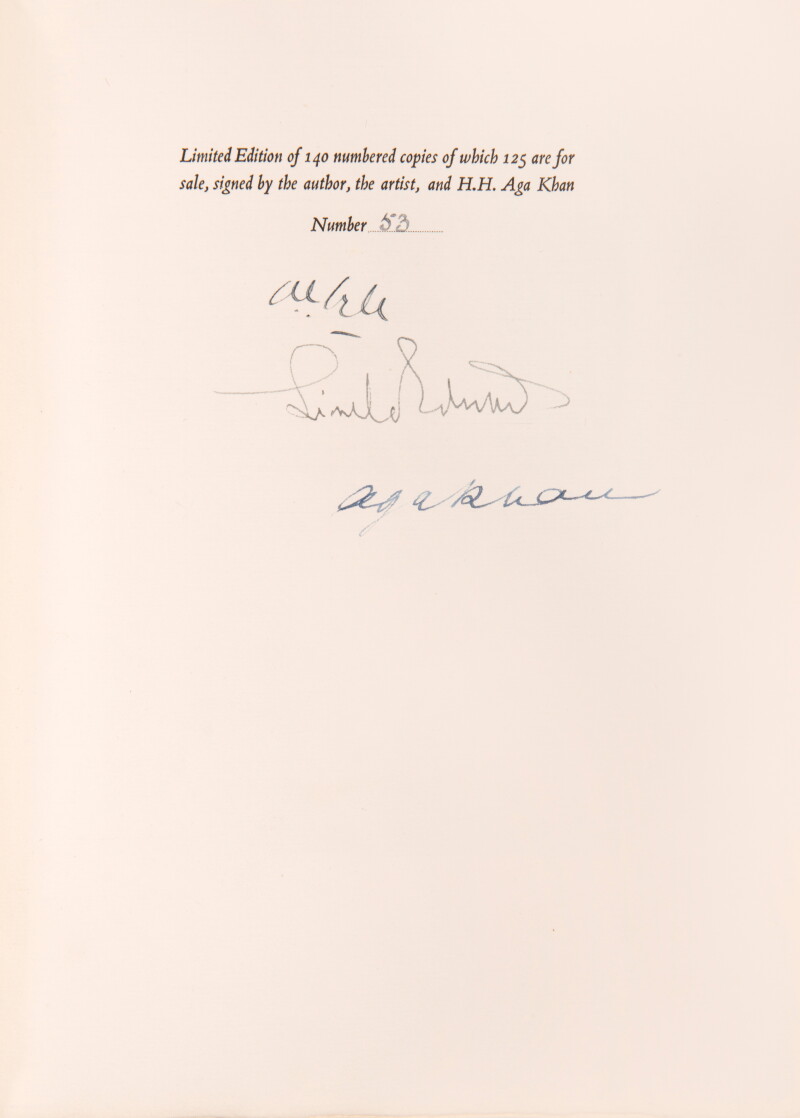 Limited Edition of 140 numbered copies of which 125 are for
sale, signed by the author, the artist, and H.H. Aga Khan
Number 53
Lionel Edwards
Aga Khan